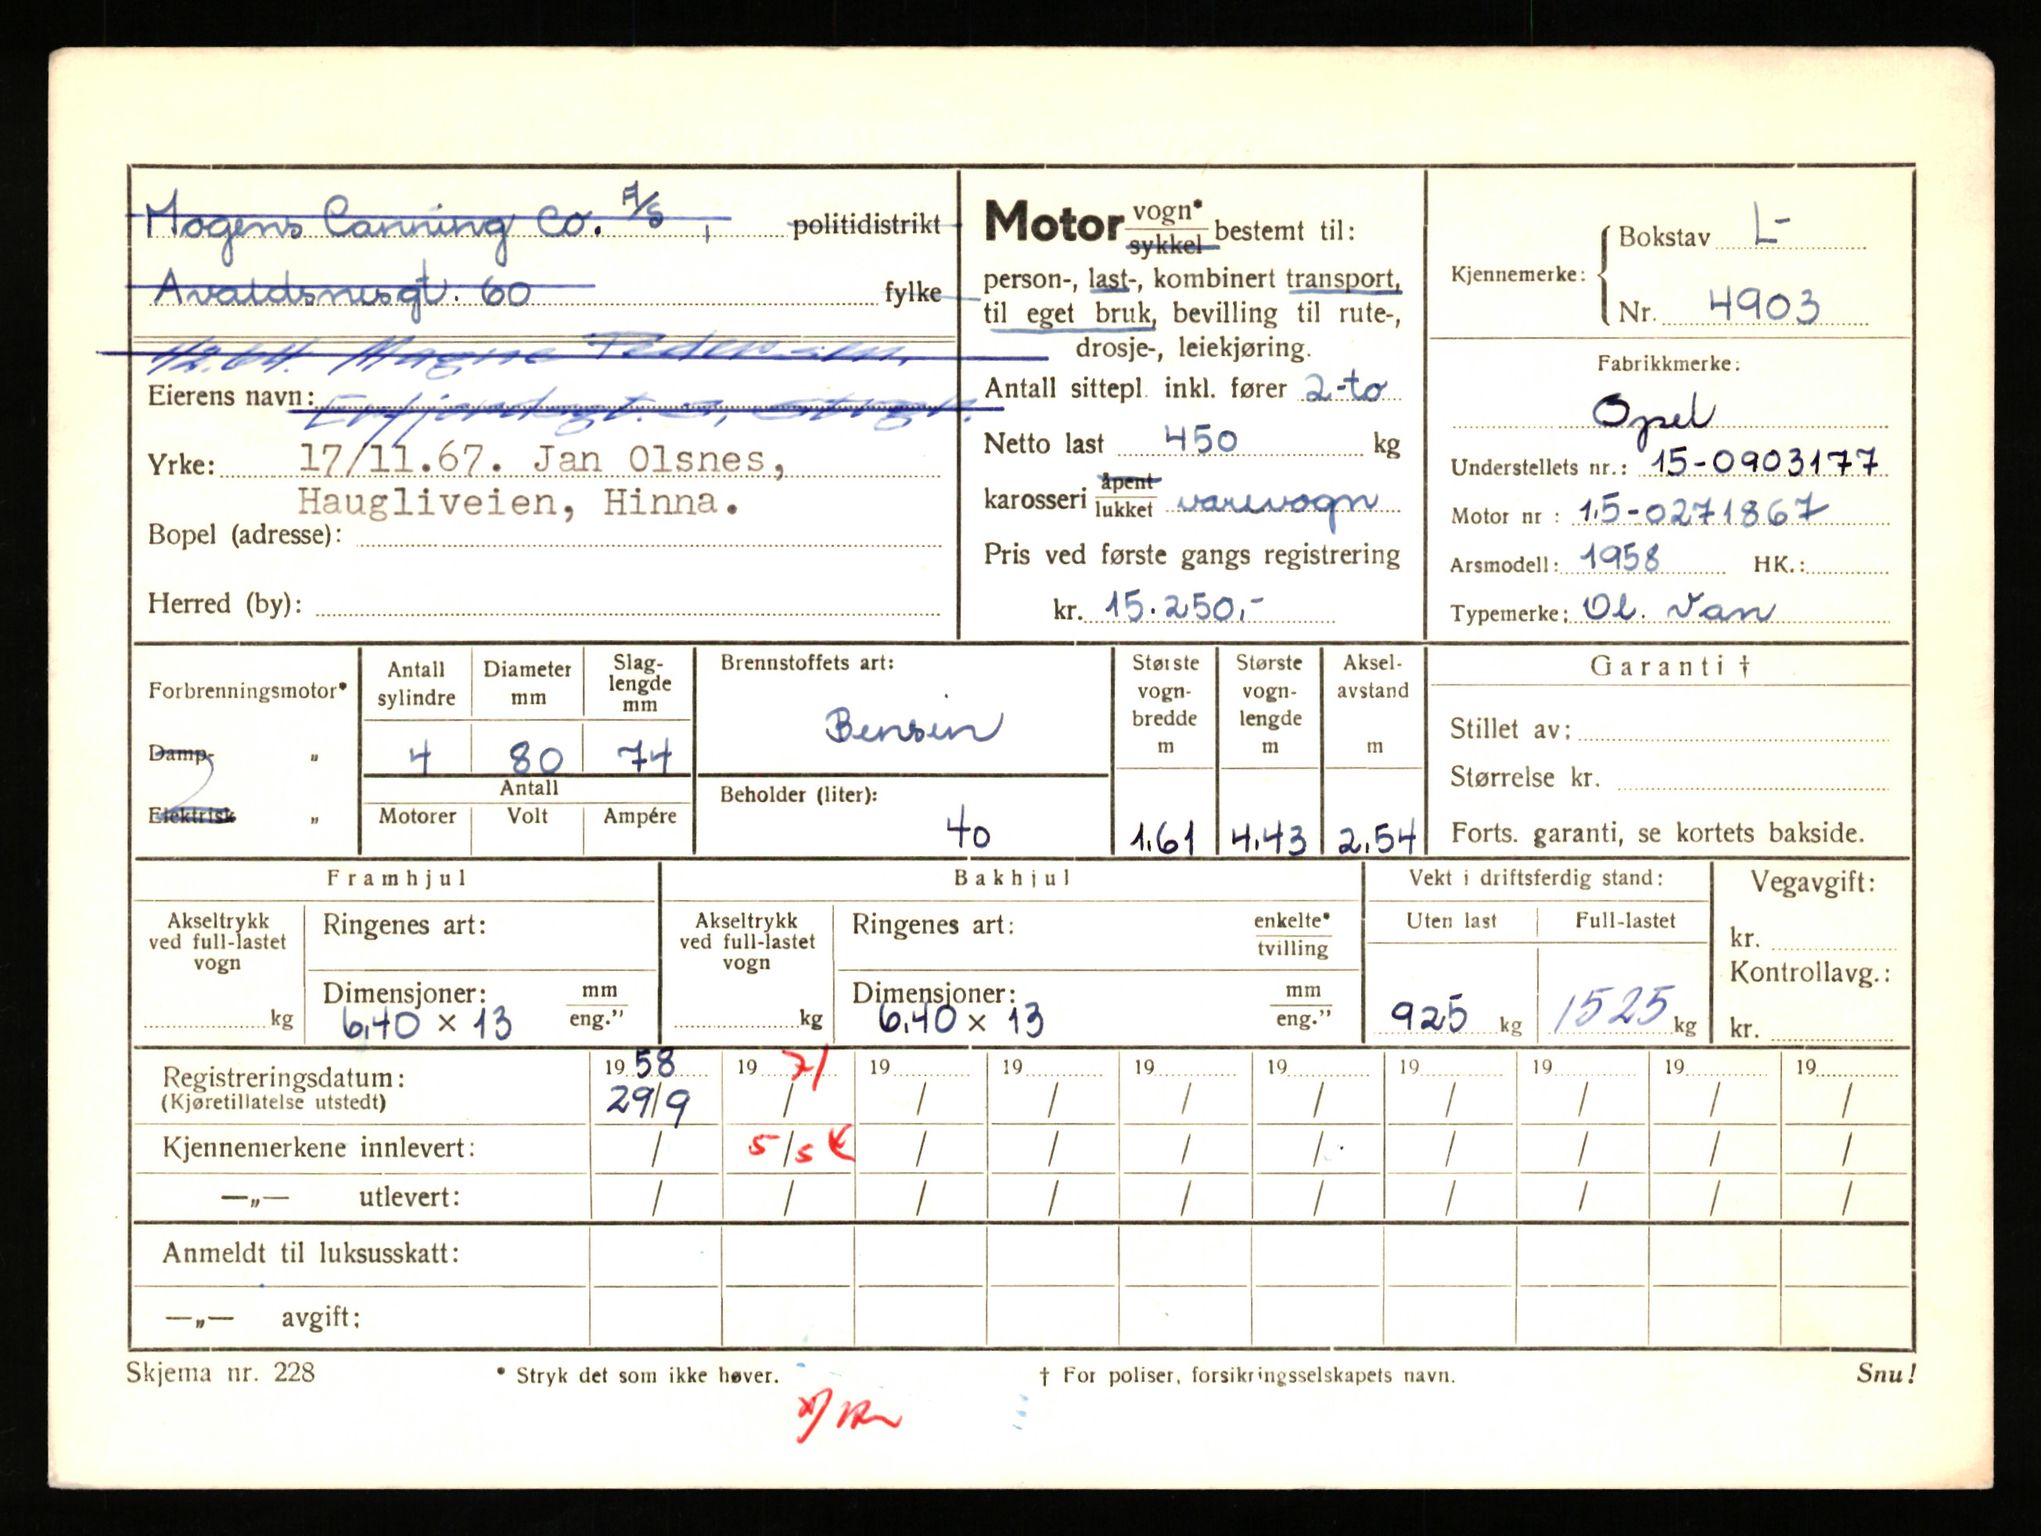 Mogens Canning Co. A/S, politidistrikt
Avaldsnesgt. 60 fylke
Magne Pedersen,
Eierens navn:
Yrke: 17/11.67. Jan Olsnes,
Haugliveien, Hinna.
Bopel (adresse):
Herred (by):
Motor vogn* sykkel bestemt til:
person-, last-, kombinert transport,
til eget bruk, bevilling til rute-,
drosje-, leiekjøring.
Antall sittepl. inkl. fører 2-to
Netto last 450 kg
karosseri åpent lukket varevogn
Pris ved første gangs registrering
kr. 15.250,-
Kjennemerke: Bokstav L-
Nr. 4903
Fabrikkmerke:
Opel
Understellets nr.: 15-0903177
Motor nr : 1,5-0271867
Arsmodell: 1958 HK.:
Typemerke: Ol. Van
Forbrenningsmotor*
Damp- „
Elektrisk „
Antall sylindre
4
Diameter mm
80
Slag-lengde mm
74
Antall
Motorer Volt Ampére
Brennstoffets art:
Bensin
Beholder (liter):
40
Største vogn-bredde m
1,61
Største vogn-lengde m
4,43
Aksel-avstand m
2,54
Garanti †
Stillet av:
Størrelse kr.
Forts. garanti, se kortets bakside.
Framhjul
Akseltrykk ved full-lastet vogn
kg
Ringenes art:
Dimensjoner: mm eng."
6,40 × 13
Bakhjul
Akseltrykk ved full-lastet vogn
kg
Ringenes art: enkelte* tvilling
Dimensjoner: mm eng."
6,40 × 13
Vekt i driftsferdig stand:
Uten last Full-lastet
925 kg 1525 kg
Vegavgift:
kr.
Kontrollavg.:
kr.
Registreringsdatum: 1958 1971 19 19 19 19 19 19 19 19
(Kjøretillatelse utstedt) 29/9 / / / / / / / / /
Kjennemerkene innlevert: / 5/5 / / / / / / / /
—„— utlevert: / / / / / / / / / /
Anmeldt til luksusskatt:
—„— avgift:
Skjema nr. 228 * Stryk det som ikke høver. † For poliser, forsikringsselskapets navn. Snu!